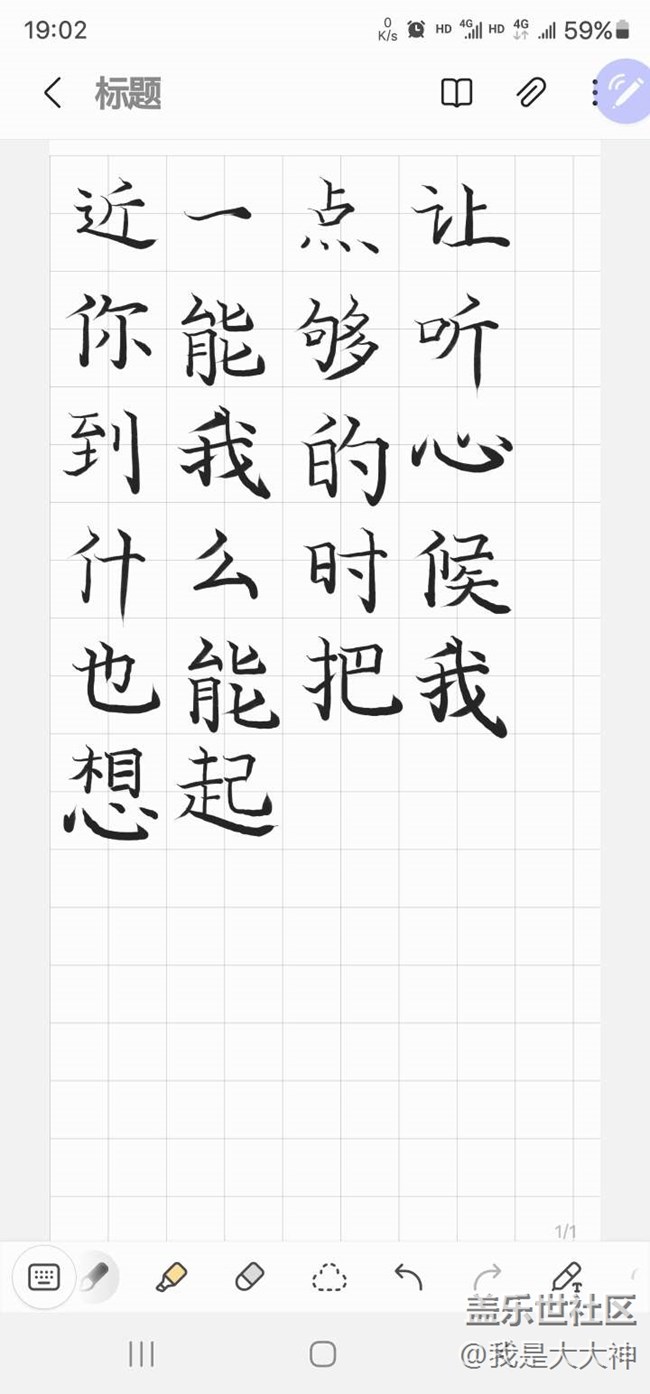 19:02 0 K/s HD 4G HD 4G 59%
标题
近一点让
你能够听
到我的心
什么时候
也能把我
想起
1/1
T
盖乐世社区
@我是大大神